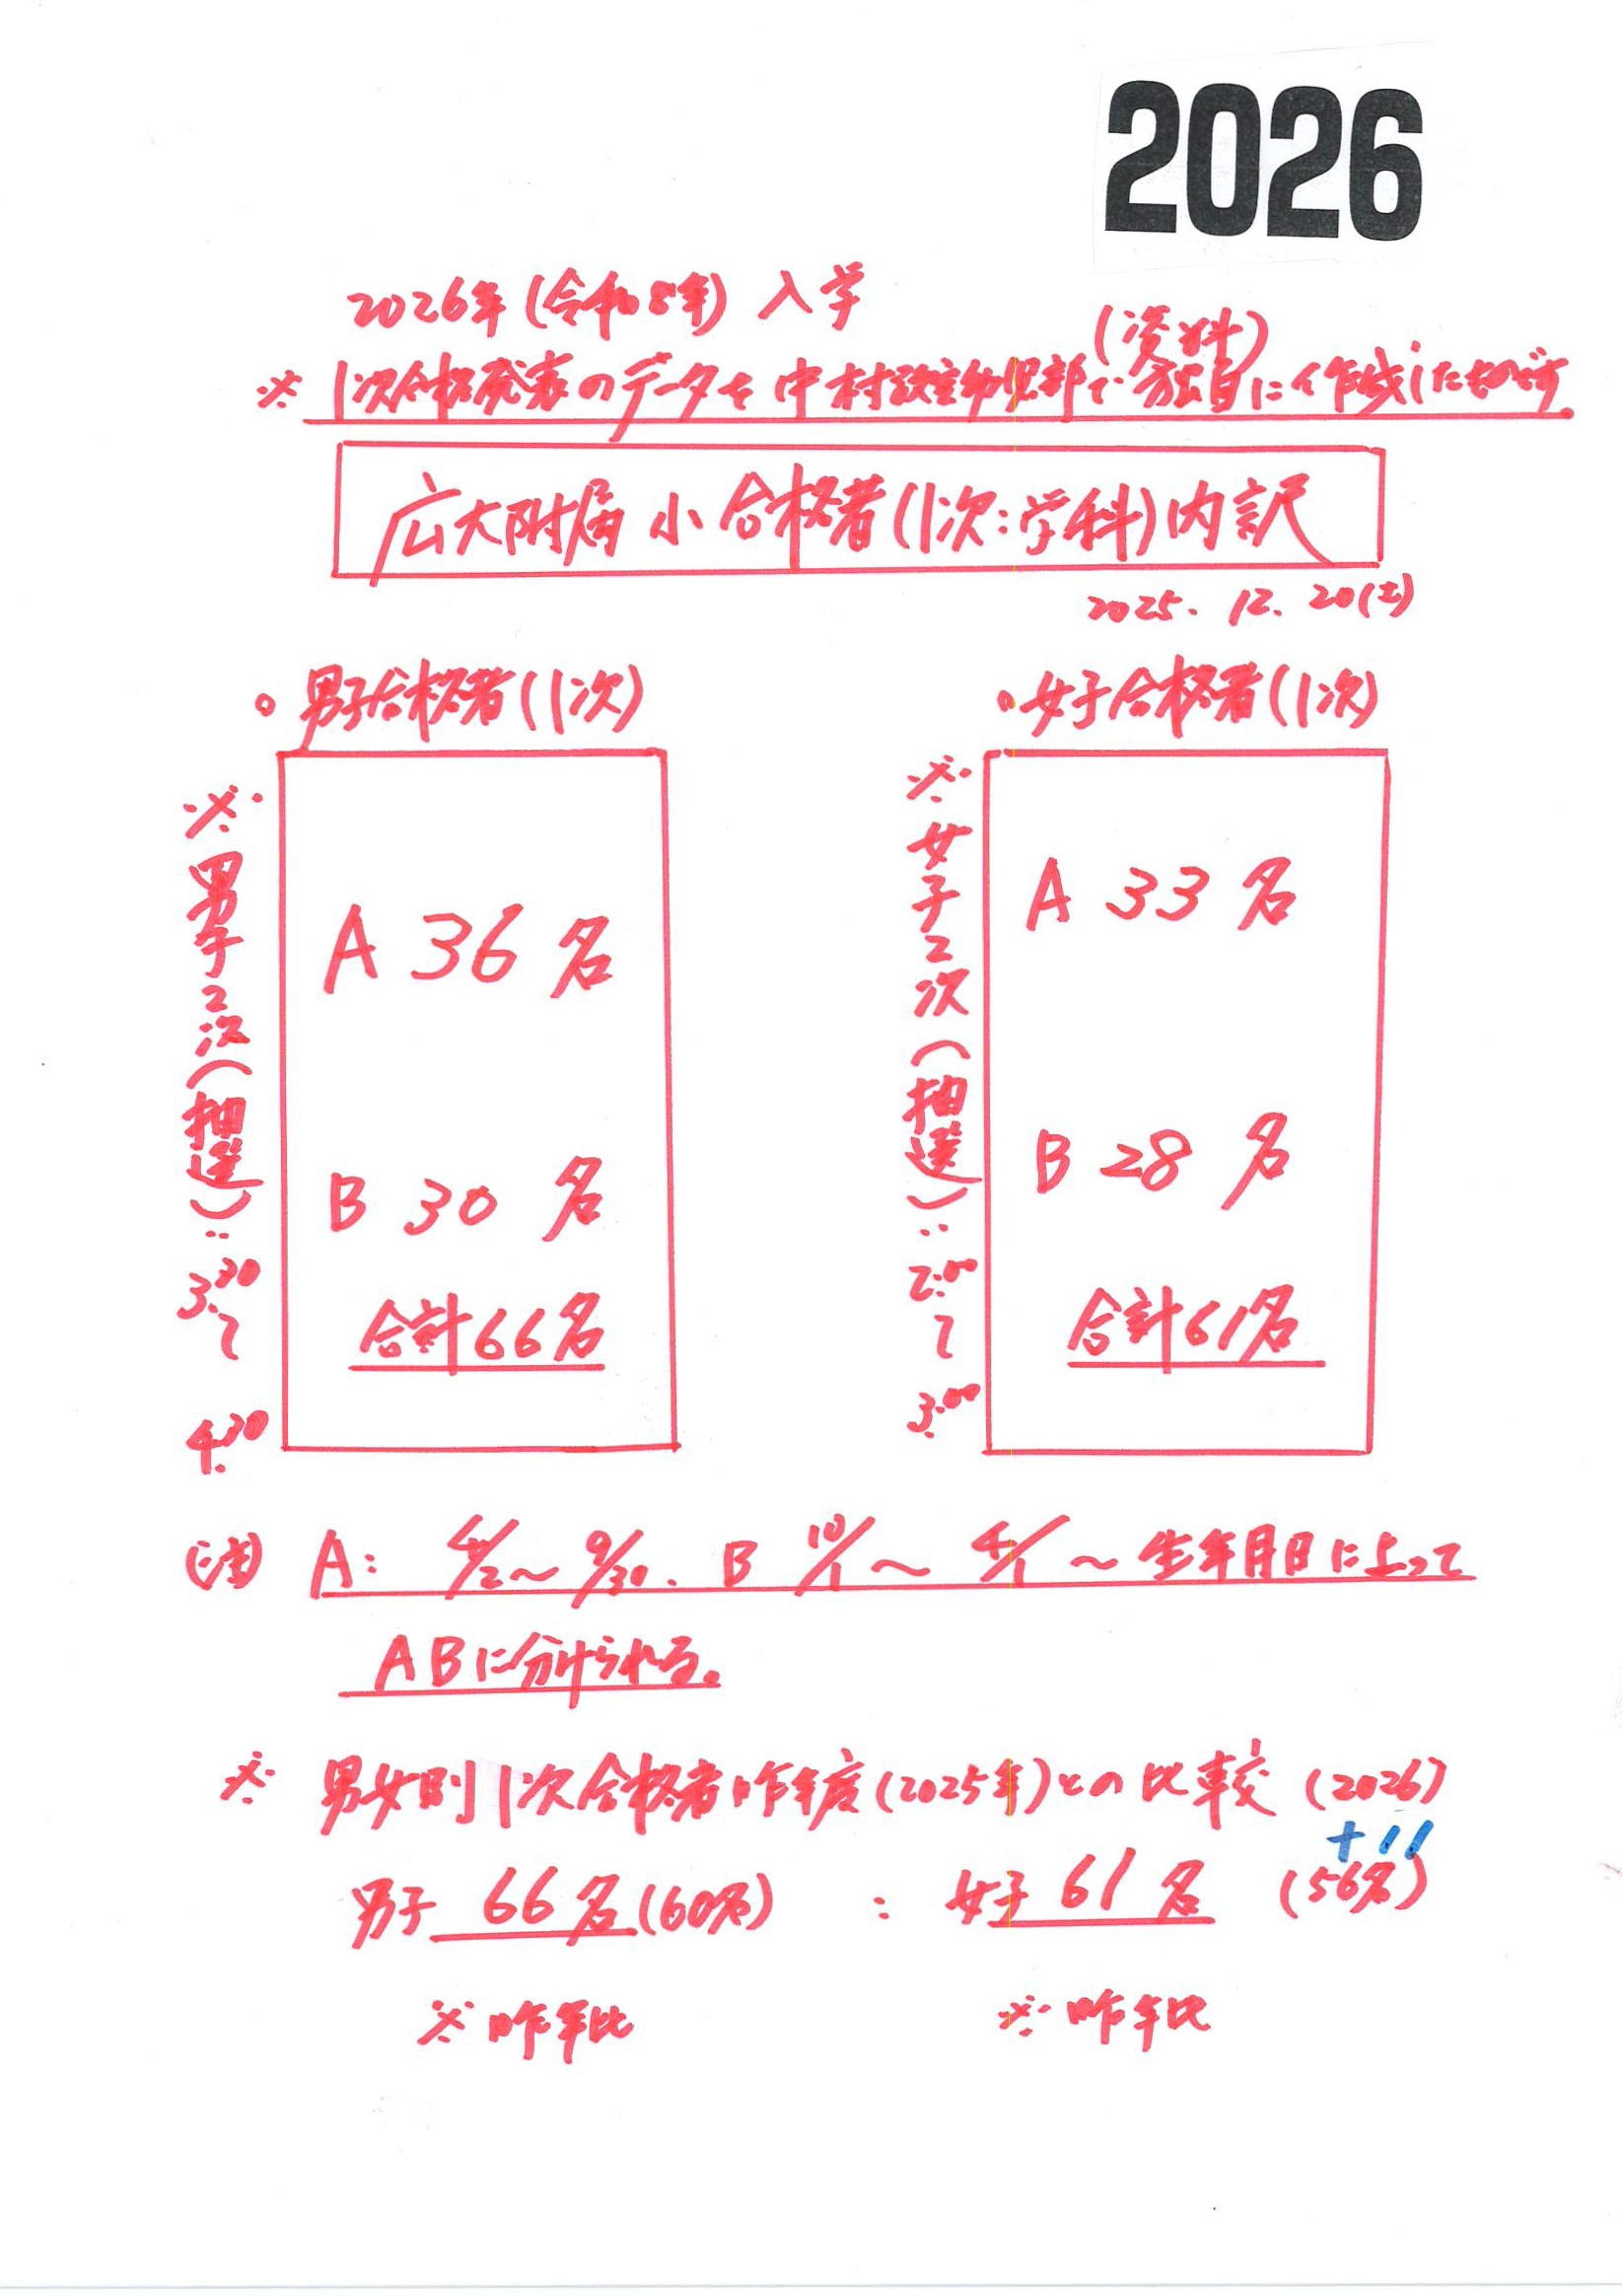 2026
2026年(令和8年)入学
(資料)
※1次合格発表のデータを中村教室幼児部で独自に作成したものです。
広大附属小合格者(1次:学科)内訳
2025.12.20(土)
。男子合格者(1次)
※男子2次(抽選):3:30〜4:30
A 36名
B 30名
合計66名
。女子合格者(1次)
※女子2次(抽選):2:00〜3:00
A 33名
B 28名
合計61名
(注) A: 4/2〜9/30. B 10/1〜4/1〜生年月日によって
ABに分けられる。
※ 男女別1次合格者昨年度(2025年)との比較(2026)
+11
男子 66名(60名) : 女子 61名 (56名)
※昨年比 ※昨年比